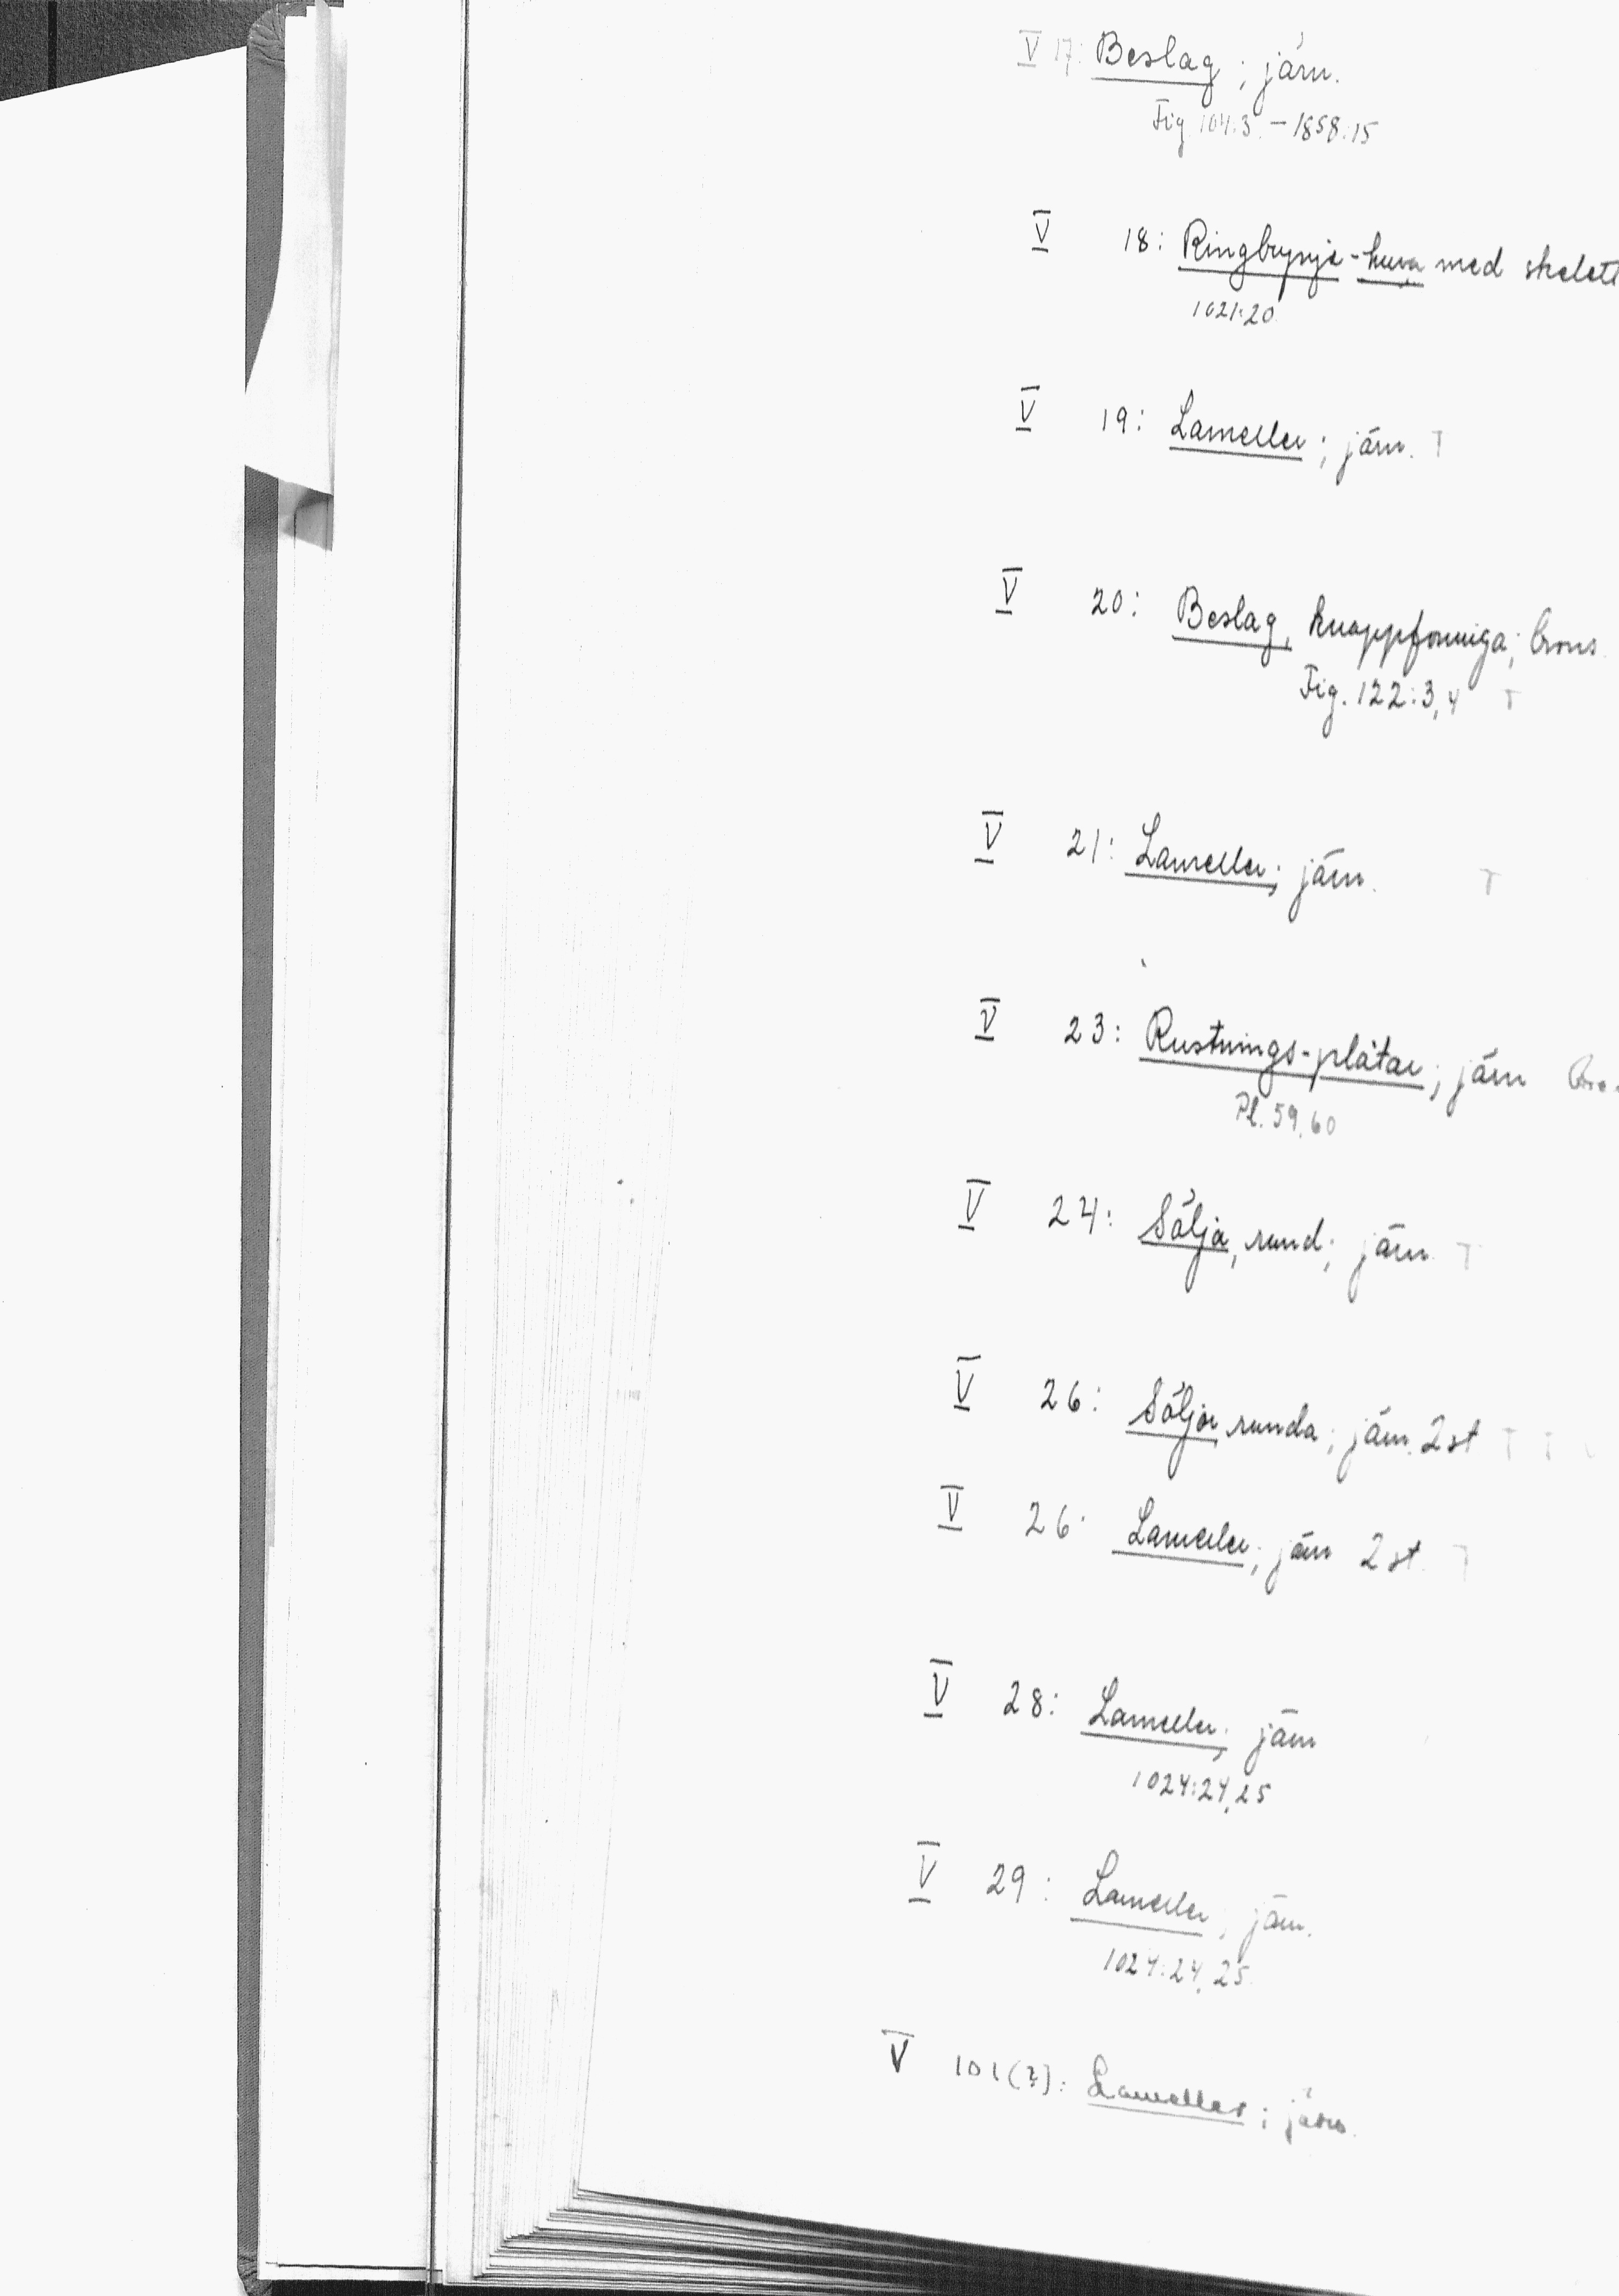 V 17: Beslag; järn.
Fig. 104:3. – 1858:15
V 18: Ringbrynje-huva med skelett
1021:20
V 19: Lameller; järn. T
V 20: Beslag, knappformiga; brons.
Fig. 122:3,4 T
V 21: Lameller; järn. T
V 23: Rustnings-plåtar; järn
Pl. 59, 60
V 24: Sölja, rund; järn T
V 26: Söljor, runda; järn. 2 st T T
V 26: Lameller; järn 2 st. T
V 28: Lameller; järn
1024:24,25
V 29: Lameller; järn.
1024:24,25
V 101(?): Lameller; järn.